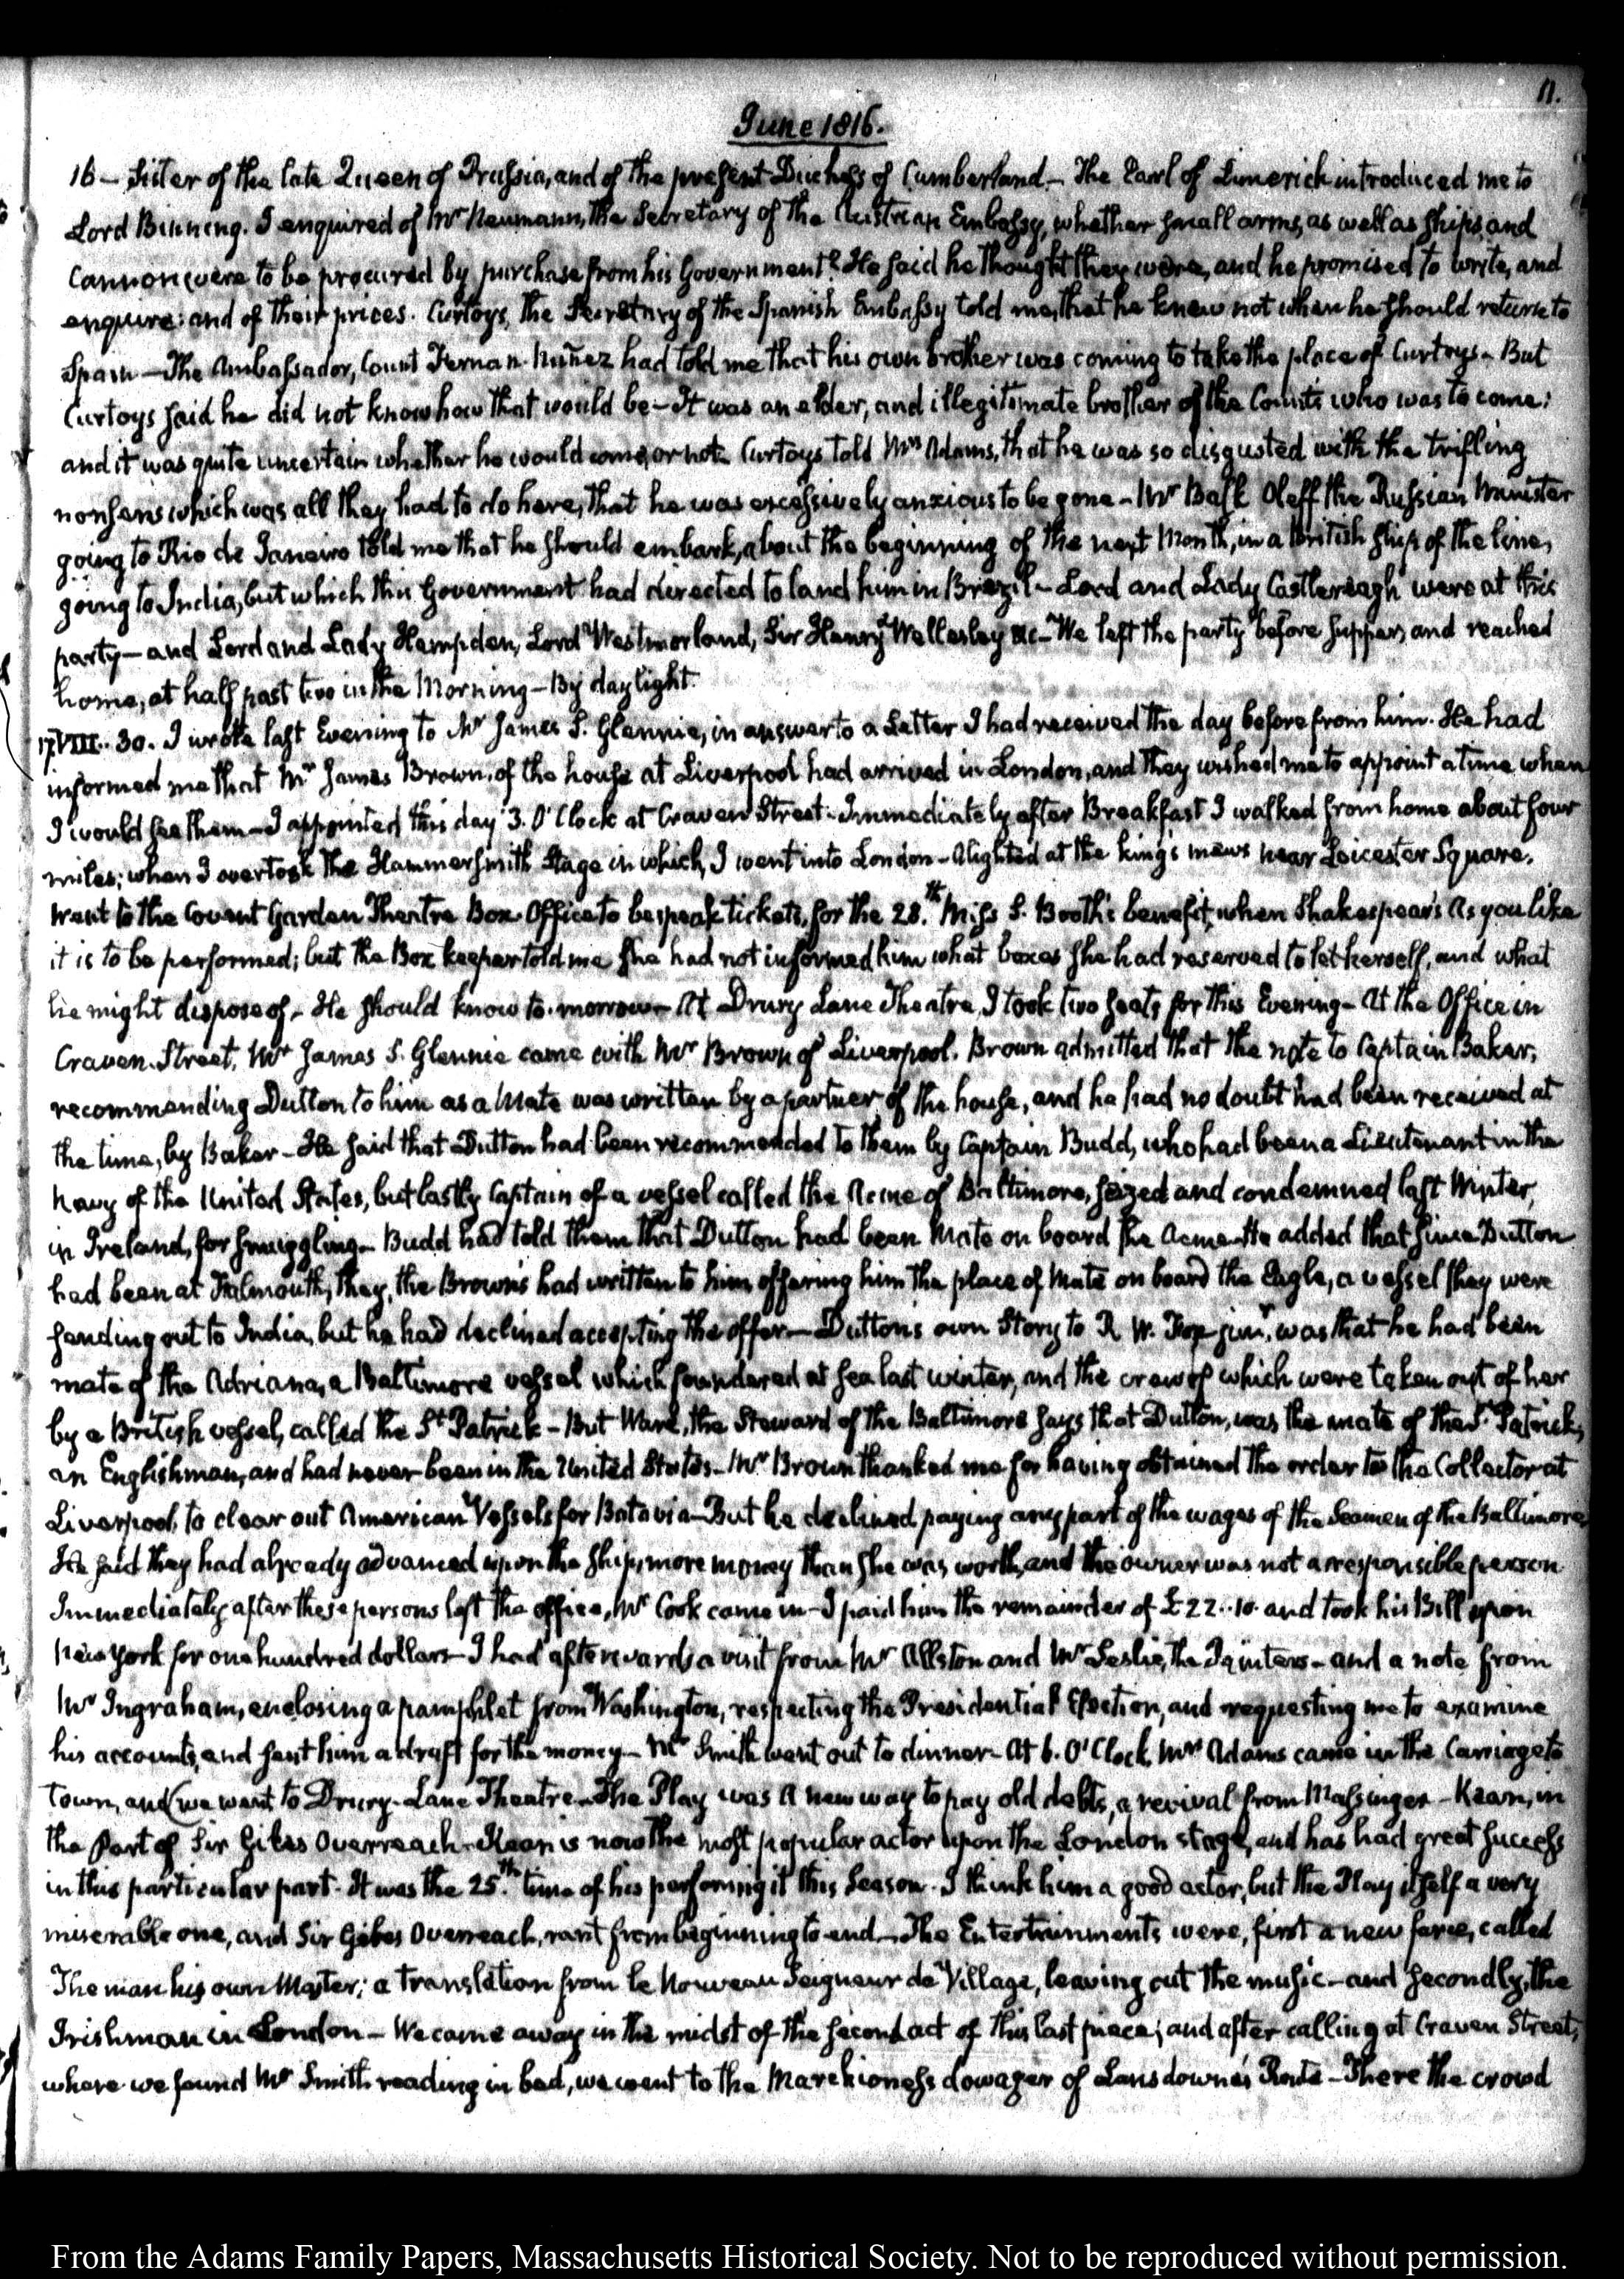 11.
June 1816.
16 — Sister of the late Queen of Prussia, and of the present Duchess of Cumberland — The Earl of Limerick introduced me to
Lord Binning. I enquired of Mr Neumann, the Secretary of the Austrian Embassy, whether small arms, as well as ships, and
Cannon were to be procured by purchase from his Government? He said he thought they were, and he promised to write, and
enquire: and of their prices. Curtoys, the Secretary of the Spanish Embassy told me, that he knew not when he should return to
Spain — The Ambassador, Count Fernan-Nuñez had told me that his own brother was coming to take the place of Curtoys — But
Curtoys said he did not know how that would be — It was an elder, and illegitimate brother of the Count's who was to come;
and it was quite uncertain whether he would come, or not. Curtoys told Mrs Adams, that he was so disgusted with the trifling
nonsens which was all they had to do here, that he was excessively anxious to be gone — Mr Balk Oleff the Russian Minister
going to Rio de Janeiro told me that he should embark, about the beginning of the next Month, in a British ship of the line,
going to India, but which this Government had directed to land him in Brazil — Lord and Lady Castlereagh were at this
party — and Lord and Lady Hampden, Lord Westmorland, Sir Henry Wellesley &c — We left the party before supper, and reached
home, at half past two in the Morning — By daylight.
17. VIII. 30. I wrote last Evening to Mr James S. Glennie, in answer to a Letter I had received the day before from him. He had
informed me that Mr James Brown, of the house at Liverpool had arrived in London, and they wished me to appoint a time when
I would see them — I appointed this day 3. O'Clock at Craven Street. Immediately after Breakfast I walked from home about four
miles; when I overtook the Hammersmith Stage in which, I went into London — Alighted at the king's mews near Leicester Square.
Went to the Covent Garden Theatre Box-Office to bespeak tickets, for the 28.th Miss S. Booth's benefit, when Shakespear's As you like
it is to be performed; but the Box keeper told me she had not informed him what boxes she had reserved to let herself, and what
he might dispose of — He should know to-morrow — At Drury Lane Theatre, I took two seats for this Evening — At the Office in
Craven-Street, Mr James S. Glennie came with Mr Brown of Liverpool. Brown admitted that the note to Captain Baker,
recommending Dutton to him as a Mate was written by a partner of the house, and he had no doubt had been received at
the time, by Baker — He said that Dutton had been recommended to them by Captain Budd, who had been a Lieutenant in the
Navy of the United States, but lastly Captain of a vessel called the Acme of Baltimore, seized and condemned last Winter,
in Ireland, for smuggling — Budd had told them that Dutton had been Mate on board the Acme — He added that since Dutton
had been at Falmouth, they, the Browns had written to him offering him the place of Mate on board the Eagle, a vessel they were
sending out to India, but he had declined accepting the offer — Dutton's own Story to R. W. Fox junr, was that he had been
mate of the Adriana, a Baltimore vessel which foundered at sea last winter, and the crew of which were taken out of her
by a British vessel, called the St Patrick — But Ware, the Steward of the Baltimore says that Dutton, was the mate of the St Patrick,
an Englishman, and had never been in the United States — Mr Brown thanked me for having obtained the order to the Collector at
Liverpool, to clear out American Vessels for Batavia — But he declined paying any part of the wages of the Seamen of the Baltimore.
He said they had already advanced upon the ship, more money than she was worth, and the owner was not a responsible person.
Immediately after these persons left the office, Mr Cook came in — I paid him the remainder of £22..10. and took his Bill upon
New York for one hundred dollars — I had afterwards a visit from Mr Allston and Mr Leslie, the Painters — and a note from
Mr Ingraham, enclosing a pamphlet from Washington, respecting the Presidential Election, and requesting me to examine
his accounts, and sent him a draft for the money — Mr Smith went out to dinner — At 6. O'Clock, Mrs Adams came in the Carriage to
town, and we went to Drury-Lane Theatre — The Play was A new way to pay old debts, a revival from Massinger — Kean, in
the Part of Sir Giles Overreach — Kean is now the most popular actor upon the London stage, and has had great success
in this particular part. It was the 25.th time of his performing it this Season. I think him a good actor, but the Play itself a very
miserable one, and Sir Giles Overreach, rant from beginning to end — The Entertainments were, first a new farce, called
The man his own Master; a translation from le Nouveau Seigneur de Village, leaving out the music — and secondly, the
Irishman in London — We came away in the midst of the second act of this last piece; and after calling at Craven Street,
where we found Mr Smith reading in bed, we went to the Marchioness dowager of Lansdowne's Route — There the crowd
From the Adams Family Papers, Massachusetts Historical Society. Not to be reproduced without permission.